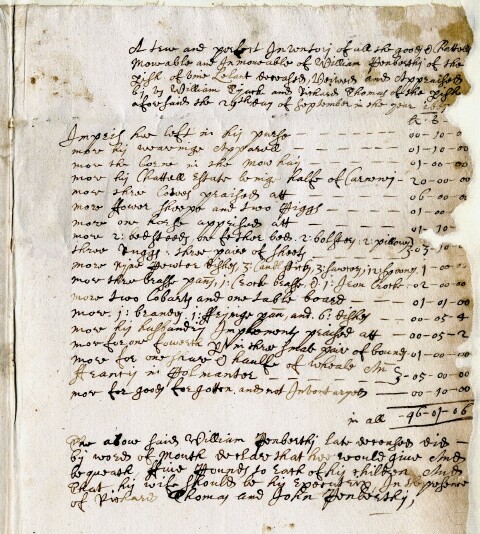 A trew and perfect Inventory of all the goods & Chattells
Moveable and Inmoveable of William Penberthy of the
pish of Lelant deceased, Veiwed and Appraised
by William and Richard Thomas of the pishe
aforesaid the 29th day of September in the year
Impris hee left in his purse 00-10-0
more his weareinge Apparell 01-00-0
more the Corne in the Mow hay 01-00-00
more his Chattell Estate beinge halfe of 20-00-00
more three Cowes praised att 06-00-00
more fower sheepe and two Piggs 01-00
more one horse apprised att 01-10
more 2: bedsteeds one fether bed: 2: bolsters: 2: pillows
three Ruggs: three paire of sheets 3-03
more Nyne Pewter dishes, 3: Candlsticks, 3: sawcers, 12 spoons 1-00-00
more three brasse pans, 1: Crock brasse, & 1: Iron Crock 02-00-00
more two Cobarts and one table board 01-01-00
more: 1: brandy, 1: fryinge pan, and 6: dishes 00-05-4
more his husbandry Implements praised att 00-05-2
mor for one fowerth in three small paire of bounds 01-00-00
more for one share & haulfe of wheale An
in Polmanter 3-05-00-00
mor for goods forgotten and not Inventoryed 00-10-00
in all 46-01-06
The above said William Penberthy late deceased did
by words of Mouth declare that hee would give And
bequeath five Pounds to Each of his children And
That his wife should be his Executrix In the presence
of Richard Thomas and John Penberthy,